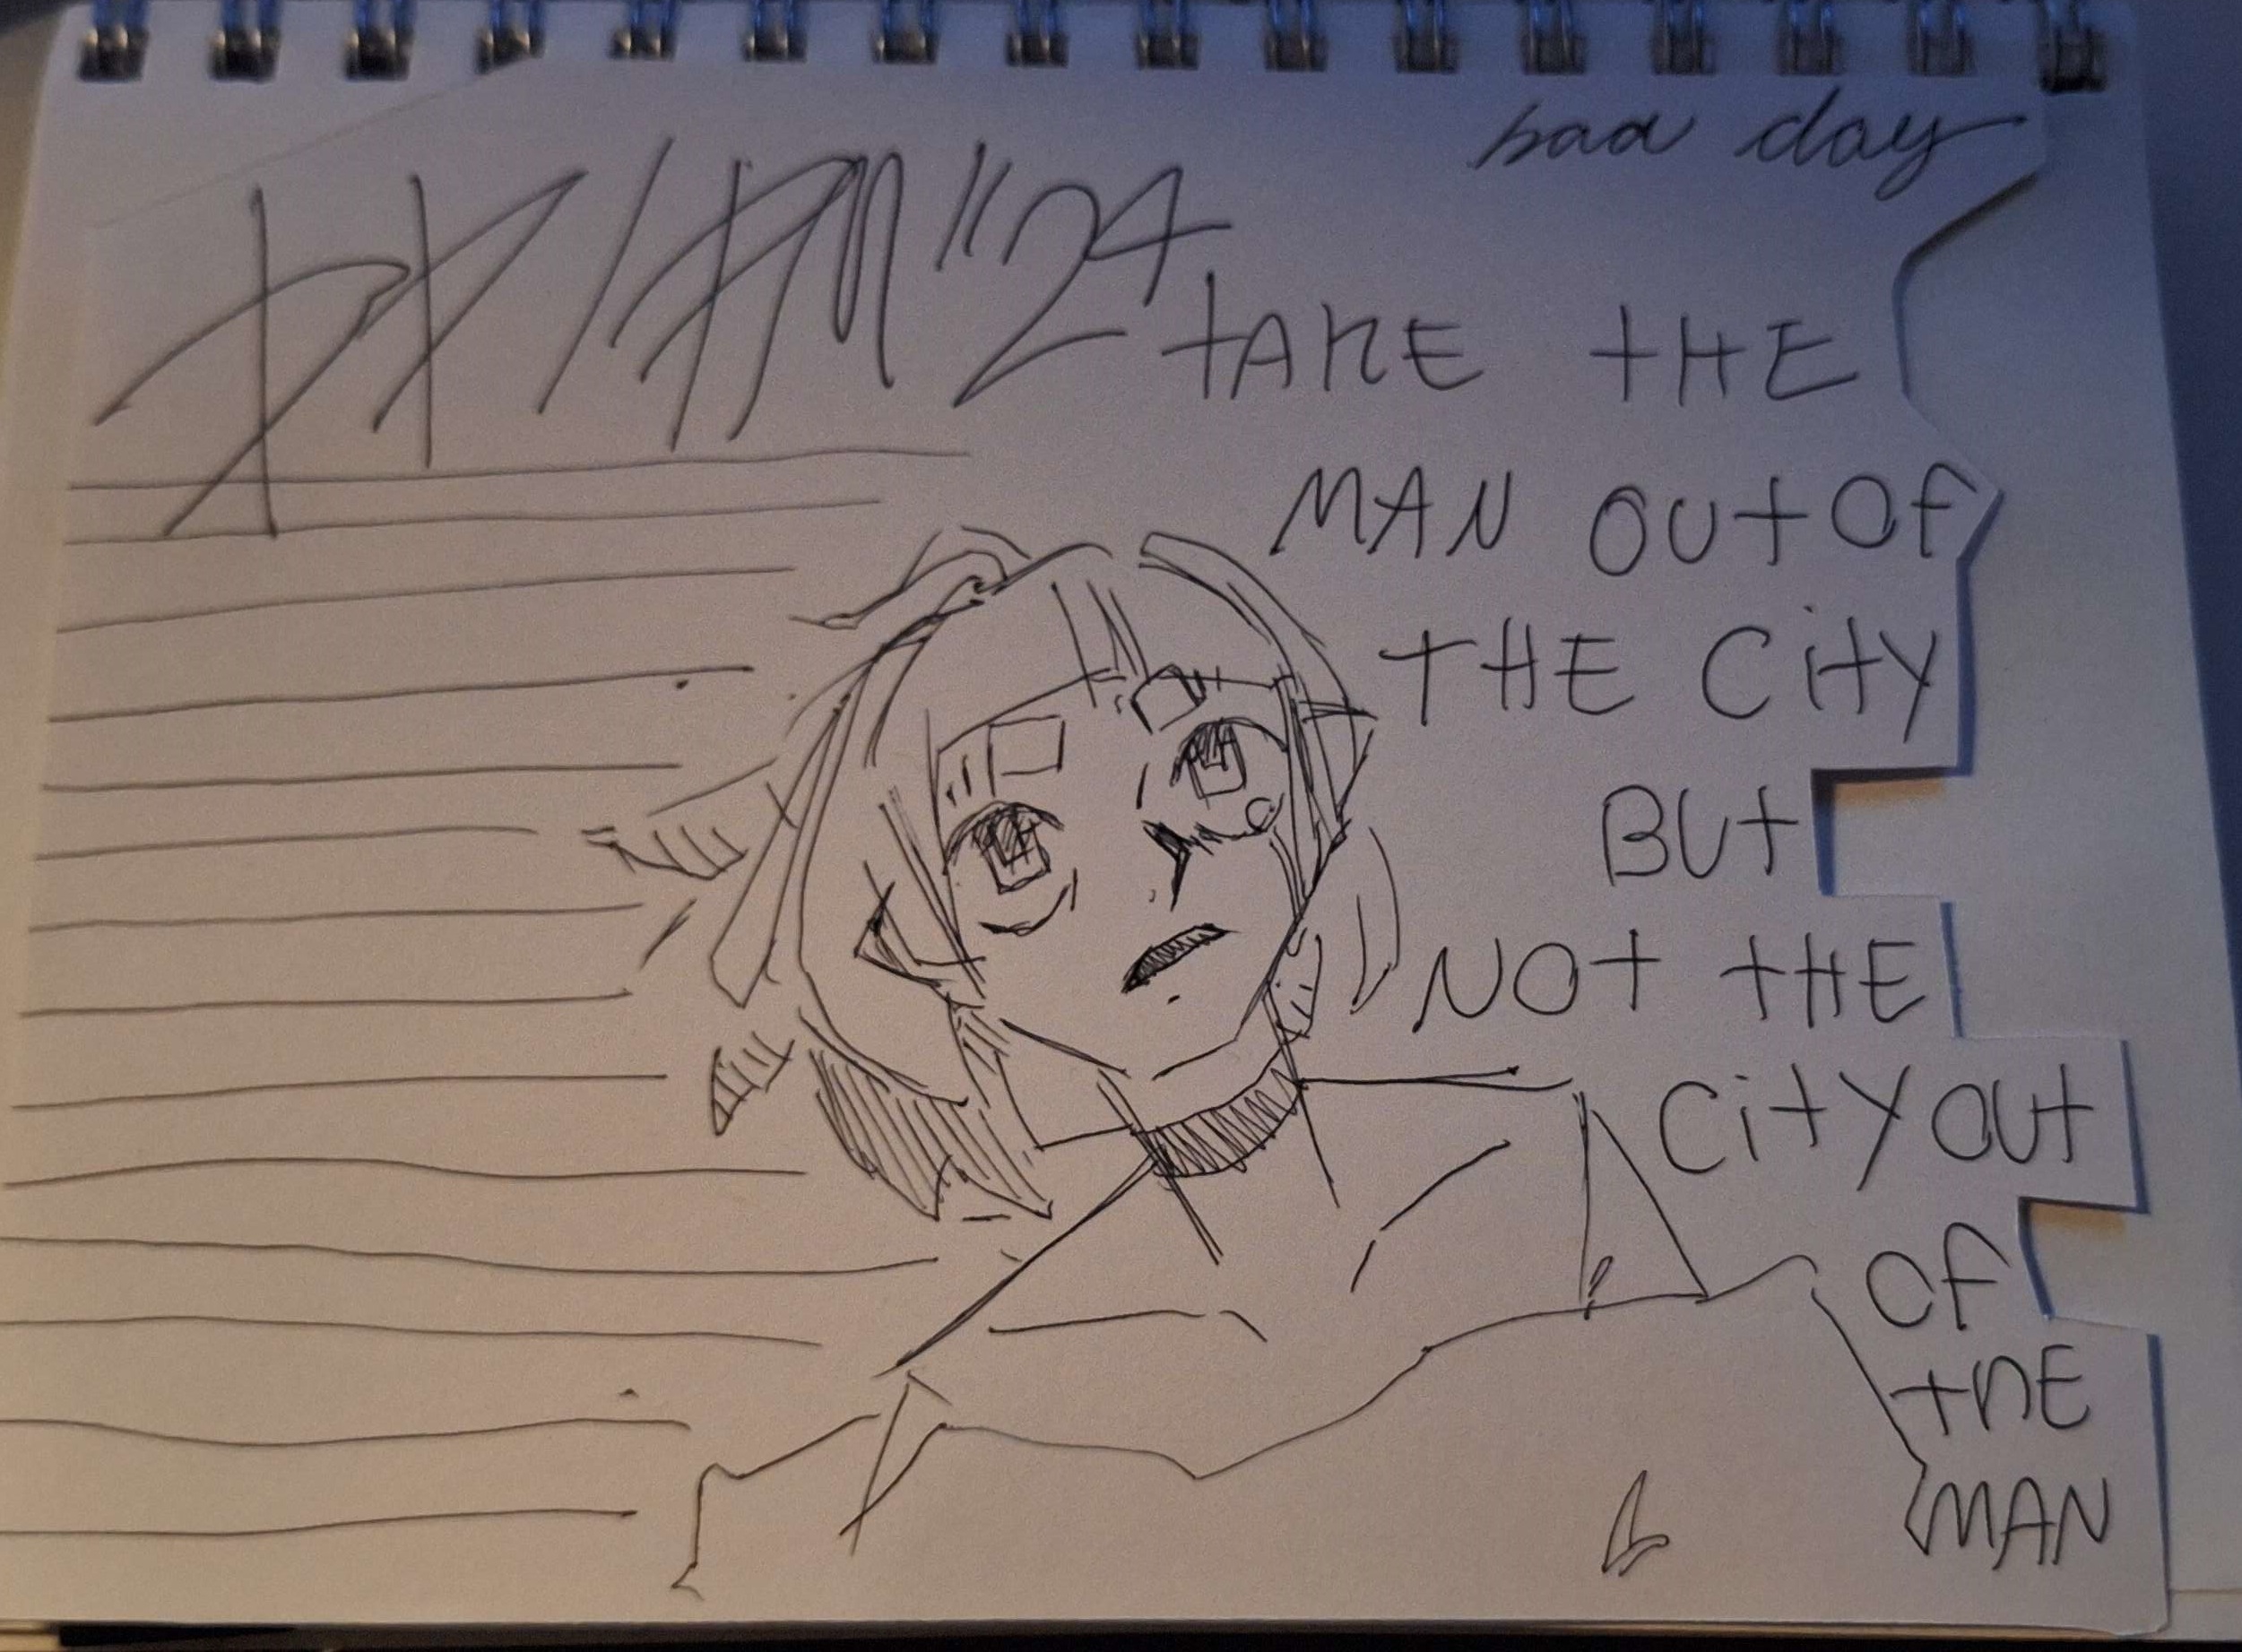 bad day
"24
tAKE tHE
MAN OUt OF
tHE CitY
BUt
NOt tHE
CitY OUt
OF
tHE
MAN